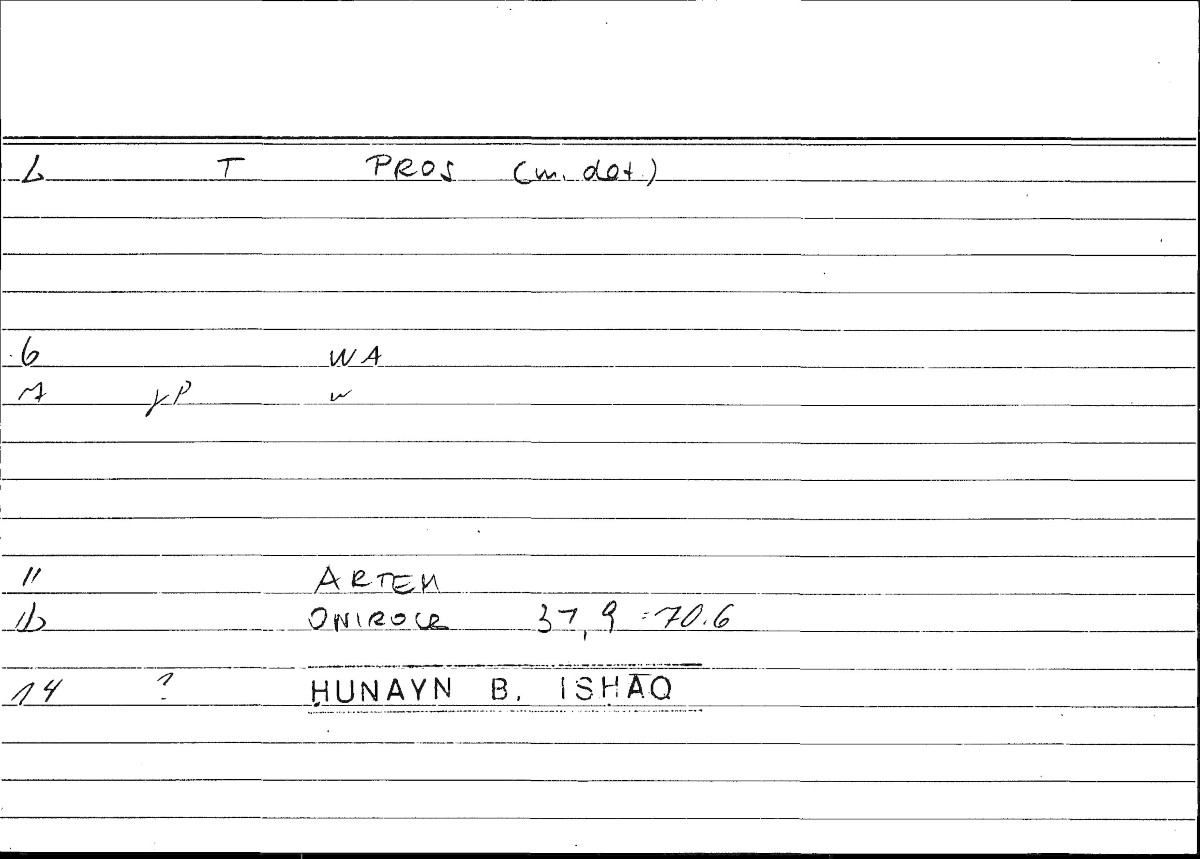 L T PROS (m. dat.)
6 WA
7 γP w
11 ARTEM
12 ONIROCR 37,9 = 70.6
14 ? ḤUNAYN B. ISḤĀQ